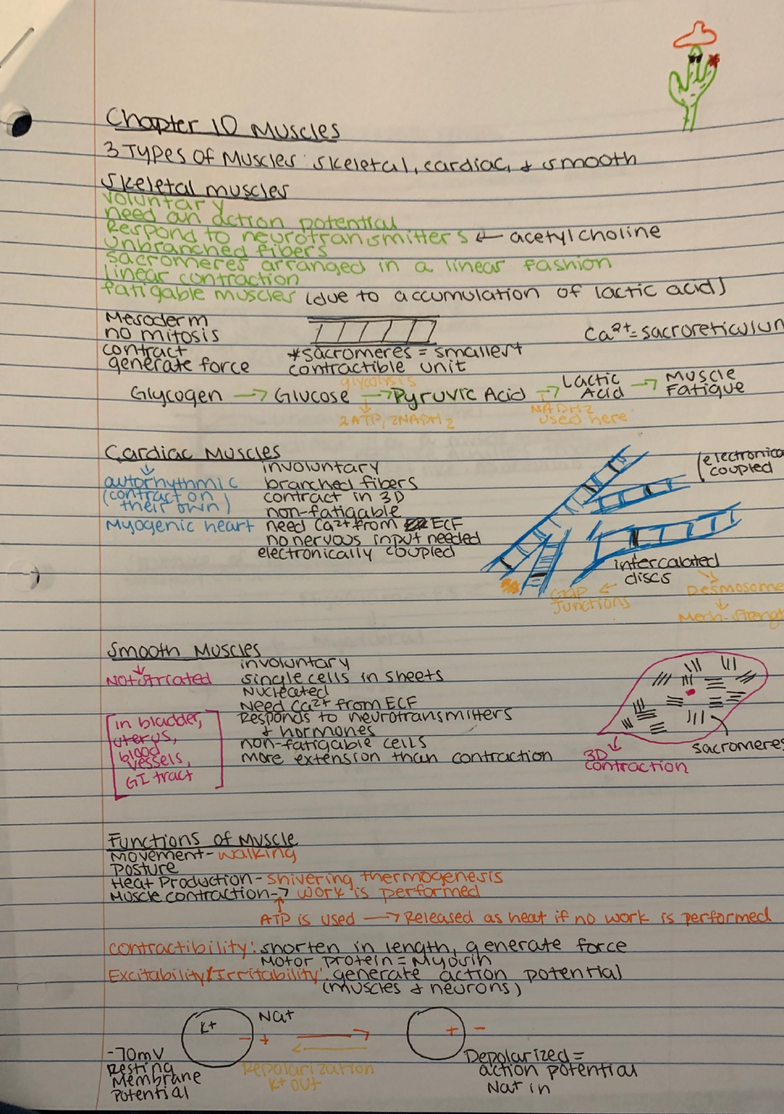 Chapter 10 Muscles
3 Types of Muscles: Skeletal, cardiac, & smooth
Skeletal muscles
voluntary
need an action potential
Respond to neurotransmitters ← acetylcholine
unbranched fibers
sacromeres arranged in a linear fashion
linear contraction
fatigable muscles (due to accumulation of lactic acid)
Mesoderm
no mitosis
contract
generate force
*sacromeres = smallest
contractible unit
Ca²⁺=sacroreticulum
Glycogen → Glucose → Pyruvic Acid → Lactic Acid → Muscle Fatigue
glycolysis
2ATP, 2NADH₂
NADH₂
used here
Cardiac Muscles
autorhythmic
(contract on
their own)
Myogenic heart
involuntary
branched fibers
contract in 3D
non-fatigable
need Ca²⁺ from ECF
no nervous input needed
electronically coupled
electronica
coupled
intercalated
discs
Gap
Junctions
Desmosome
Mech. strength
Smooth Muscles
Not striated
in bladder,
uterus,
blood
vessels,
GI tract
involuntary
single cells in sheets
Nucleated
Need Ca²⁺ from ECF
Responds to neurotransmitters
& hormones
non-fatigable cells
more extension than contraction
sacromeres
3D
contraction
Functions of Muscle
Movement - walking
Posture
Heat Production - shivering thermogenesis
Muscle contraction → work is performed
ATP is used → Released as heat if no work is performed
contractibility: shorten in length, generate force
Motor protein = Myosin
Excitability/Irritability: generate action potential
(muscles & neurons)
K+
Na+
- +
+ -
-70mV
Resting
Membrane
Potential
Repolarization
K+ out
Depolarized =
action potential
Na+ in